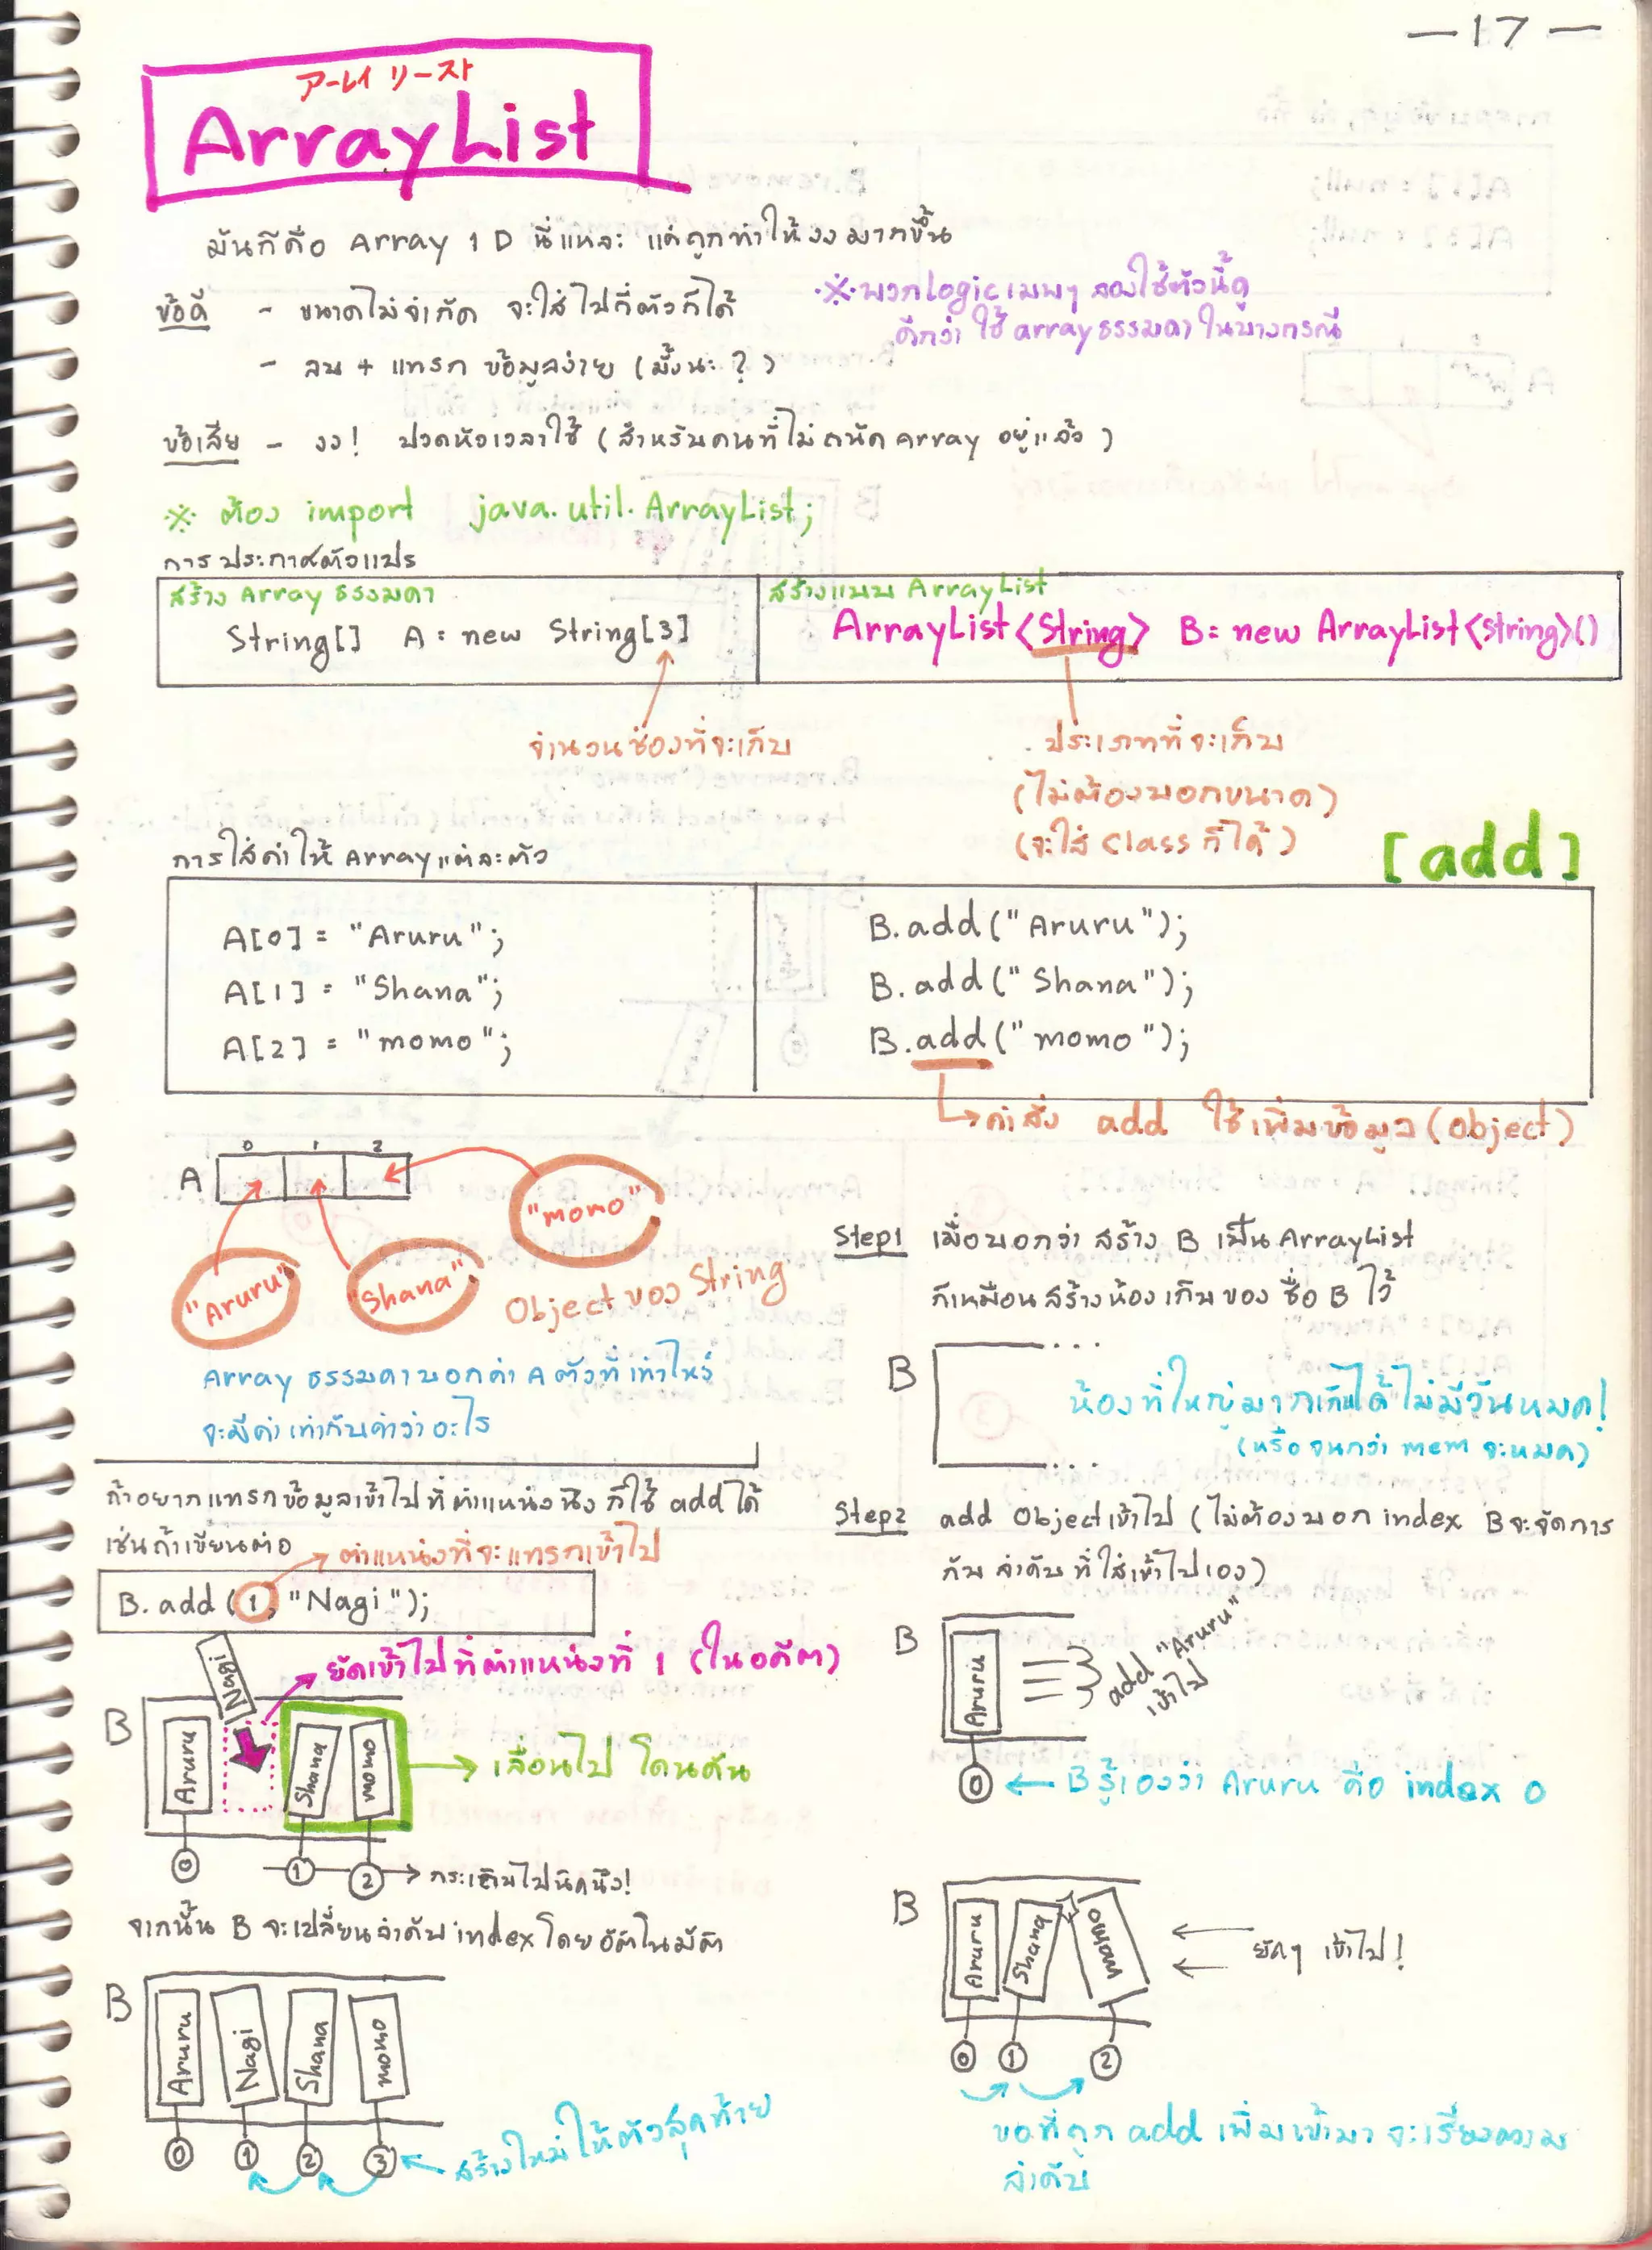 —17—
アーレイ リースト
ArrayList
มันก็คือ Array 1 D นี่แหละ แค่ถูกทำให้งงมากขึ้น
ข้อดี - ขนาดไม่จำกัด จะใส่ไปกี่ตัวก็ได้
※พวกlogicเมพๆ ลองใช้ตัวนี้ดู
ดีกว่า ใช้ arrayธรรมดา ในบางกรณี
- ลบ + แทรก ข้อมูลง่าย (มั้งนะ ?)
ข้อเสีย - งง! ปวดหัวเวลาใช้ (สำหรับคนที่ไม่ถนัด Array อยู่แล้ว)
※ ต้อง import java.util.ArrayList;
การประกาศตัวแปร
สร้าง Array ธรรมดา
String[] A = new String[3]
สร้างแบบ ArrayList
ArrayList<String> B = new ArrayList<String>()
จำนวนช่องที่จะเก็บ
ประเภทที่จะเก็บ
(ไม่ต้องบอกขนาด)
(จะใส่ Class ก็ได้)
[add]
การใส่ค่าให้ Arrayแต่ละตัว
A[0] = "Aruru";
A[1] = "Shana";
A[2] = "momo";
B.add("Aruru");
B.add("Shana");
B.add("momo");
คำสั่ง add ใช้เพิ่มข้อมูล(Object)
0 1 2
A
"momo"
"Aruru"
"Shana"
Object ของ String
Array ธรรมดาบอกค่า A ตัวที่เท่าไหร่
จะมีค่าเท่ากับคำว่าอะไร
ถ้าอยากแทรกข้อมูลเข้าไปที่ตำแหน่งนึง ก็ใช้ add ได้
เช่นถ้าเขียนต่อ
ตำแหน่งที่จะแทรกเข้าไป
B.add(1, "Nagi");
ยัดเข้าไปที่ตำแหน่งที่ 1 (ในอดีต)
Nagi
B
Aruru
Shana
momo
เลื่อนไป โดนดัน
0 1 2
กระเถิบไปนิดนึง!
จากนั้น B จะเปลี่ยนลำดับ index โดยอัตโนมัติ
B
Aruru
Nagi
Shana
momo
0 1 2 3
สร้างใหม่ให้ตัวสุดท้าย
Step1 เมื่อบอกว่า สร้าง B เป็น ArrayList
ก็เหมือนสร้างห้องเก็บของ ชื่อ B ไว้
B
ห้องที่ใหญ่มากเก็บได้ไม่มีวันหมด!
(หรือจนกว่า mem จะหมด)
Step2 add Objectเข้าไป (ไม่ต้องบอก index B จะจัดการ
กับ ลำดับ ที่ใส่เข้าไปเอง)
B
Aruru
add "Aruru"
เข้าไป
0
B รู้เองว่า Aruru คือ index 0
B
Aruru
Shana
momo
ยัดๆ เข้าไป!
0 1 2
ขอที่ถูก add เพิ่มเข้ามา จะเรียงตาม
ลำดับ